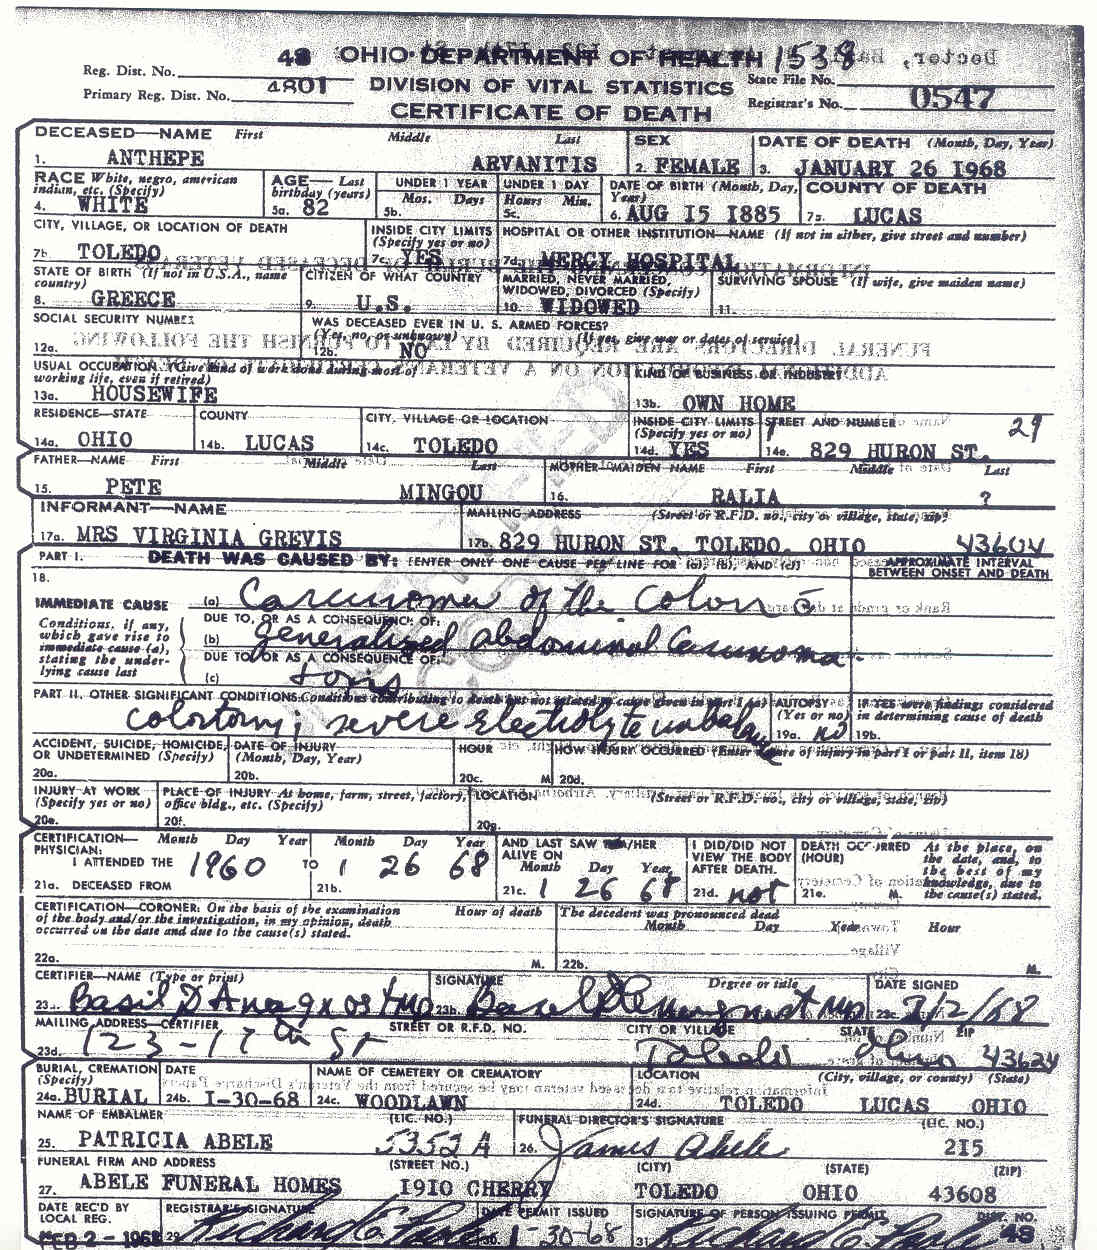 48 OHIO DEPARTMENT OF HEALTH 1538
Reg. Dist. No. DIVISION OF VITAL STATISTICS State File No.
Primary Reg. Dist. No. 4801 CERTIFICATE OF DEATH Registrar's No. 0547
DECEASED—NAME First Middle Last SEX DATE OF DEATH (Month, Day, Year)
1. ANTHEPE ARVANITIS 2. FEMALE 3. JANUARY 26 1968
RACE White, negro, american indian, etc. (Specify) AGE—Last birthday (years) UNDER 1 YEAR UNDER 1 DAY DATE OF BIRTH (Month, Day, Year) COUNTY OF DEATH
Mos. Days Hours Min.
4. WHITE 5a. 82 5b. 5c. 6. AUG 15 1885 7a. LUCAS
CITY, VILLAGE, OR LOCATION OF DEATH INSIDE CITY LIMITS (Specify yes or no) HOSPITAL OR OTHER INSTITUTION—NAME (If not in either, give street and number)
7b. TOLEDO 7c. YES 7d. MERCY HOSPITAL
STATE OF BIRTH (If not in U.S.A., name country) CITIZEN OF WHAT COUNTRY MARRIED, NEVER MARRIED, WIDOWED, DIVORCED (Specify) SURVIVING SPOUSE (If wife, give maiden name)
8. GREECE 9. U.S. 10. WIDOWED 11.
SOCIAL SECURITY NUMBER WAS DECEASED EVER IN U. S. ARMED FORCES?
(Yes, no, or unknown) (If yes, give war or dates of service)
12a. 12b. NO
USUAL OCCUPATION (Give kind of work done during most of working life, even if retired) KIND OF BUSINESS OR INDUSTRY
13a. HOUSEWIFE 13b. OWN HOME
RESIDENCE—STATE COUNTY CITY, VILLAGE OR LOCATION INSIDE CITY LIMITS (Specify yes or no) STREET AND NUMBER 29
14a. OHIO 14b. LUCAS 14c. TOLEDO 14d. YES 14e. 829 HURON ST.
FATHER—NAME First Middle Last MOTHER—MAIDEN NAME First Middle Last
15. PETE MINGOU 16. RALIA ?
INFORMANT—NAME MAILING ADDRESS (Street or R.F.D. no., city or village, state, zip)
17a. MRS VIRGINIA GREVIS 17b. 829 HURON ST. TOLEDO, OHIO 43604
PART I. DEATH WAS CAUSED BY: [ENTER ONLY ONE CAUSE PER LINE FOR (a), (b), AND (c)] APPROXIMATE INTERVAL BETWEEN ONSET AND DEATH
18.
IMMEDIATE CAUSE (a) Carcinoma of the Colon c̄
DUE TO, OR AS A CONSEQUENCE OF:
Conditions, if any, which gave rise to immediate cause (a), stating the underlying cause last
(b) generalized abdominal Carcinoma-
DUE TO, OR AS A CONSEQUENCE OF:
(c) tosis
PART II. OTHER SIGNIFICANT CONDITIONS: Conditions contributing to death but not related to cause given in part I (a) AUTOPSY (Yes or no) IF YES were findings considered in determining cause of death
colostomy; severe electrolyte unbalance 19a. no 19b.
ACCIDENT, SUICIDE, HOMICIDE, OR UNDETERMINED (Specify) DATE OF INJURY (Month, Day, Year) HOUR HOW INJURY OCCURRED (Enter nature of injury in part I or part II, item 18)
20a. 20b. 20c. M. 20d.
INJURY AT WORK (Specify yes or no) PLACE OF INJURY At home, farm, street, factory, office bldg., etc. (Specify) LOCATION (Street or R.F.D. no., city or village, state, zip)
20e. 20f. 20g.
CERTIFICATION—PHYSICIAN: Month Day Year Month Day Year AND LAST SAW HIM/HER ALIVE ON Month Day Year I DID/DID NOT VIEW THE BODY AFTER DEATH. DEATH OCCURRED (HOUR) At the place, on the date, and, to the best of my knowledge, due to the cause(s) stated.
I ATTENDED THE 1960 TO 1 26 68
21a. DECEASED FROM 21b. 21c. 1 26 68 21d. not 21e.
CERTIFICATION—CORONER: On the basis of the examination of the body and/or the investigation, in my opinion, death occurred on the date and due to the cause(s) stated. Hour of death The decedent was pronounced dead
Month Day Year Hour
22a. M. 22b. M.
CERTIFIER—NAME (Type or print) SIGNATURE Degree or title DATE SIGNED
23a. Basil D Anagnost MD 23b. Basil D Anagnost MD 23c. 2/2/68
MAILING ADDRESS—CERTIFIER STREET OR R.F.D. NO. CITY OR VILLAGE STATE ZIP
23d. 123-17th St Toledo Ohio 43624
BURIAL, CREMATION (Specify) DATE NAME OF CEMETERY OR CREMATORY LOCATION (City, village, or county) (State)
24a. BURIAL 24b. 1-30-68 24c. WOODLAWN 24d. TOLEDO LUCAS OHIO
NAME OF EMBALMER (LIC. NO.) FUNERAL DIRECTOR'S SIGNATURE (LIC. NO.)
25. PATRICIA ABELE 5352A 26. James Abele 215
FUNERAL FIRM AND ADDRESS (STREET NO.) (CITY) (STATE) (ZIP)
27. ABELE FUNERAL HOMES 1910 CHERRY TOLEDO OHIO 43608
DATE REC'D BY LOCAL REG. REGISTRAR'S SIGNATURE DATE PERMIT ISSUED SIGNATURE OF PERSON ISSUING PERMIT DIST. NO.
FEB 2 - 1968 29. 30. 1 30-68 31. 48